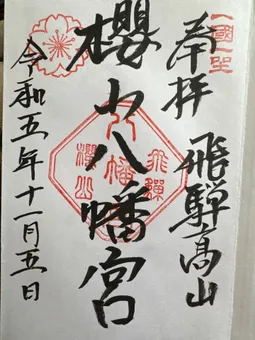 一國一社
奉拝 飛騨高山
櫻山八幡宮
飛騨
八幡
櫻山
令和五年十一月五日